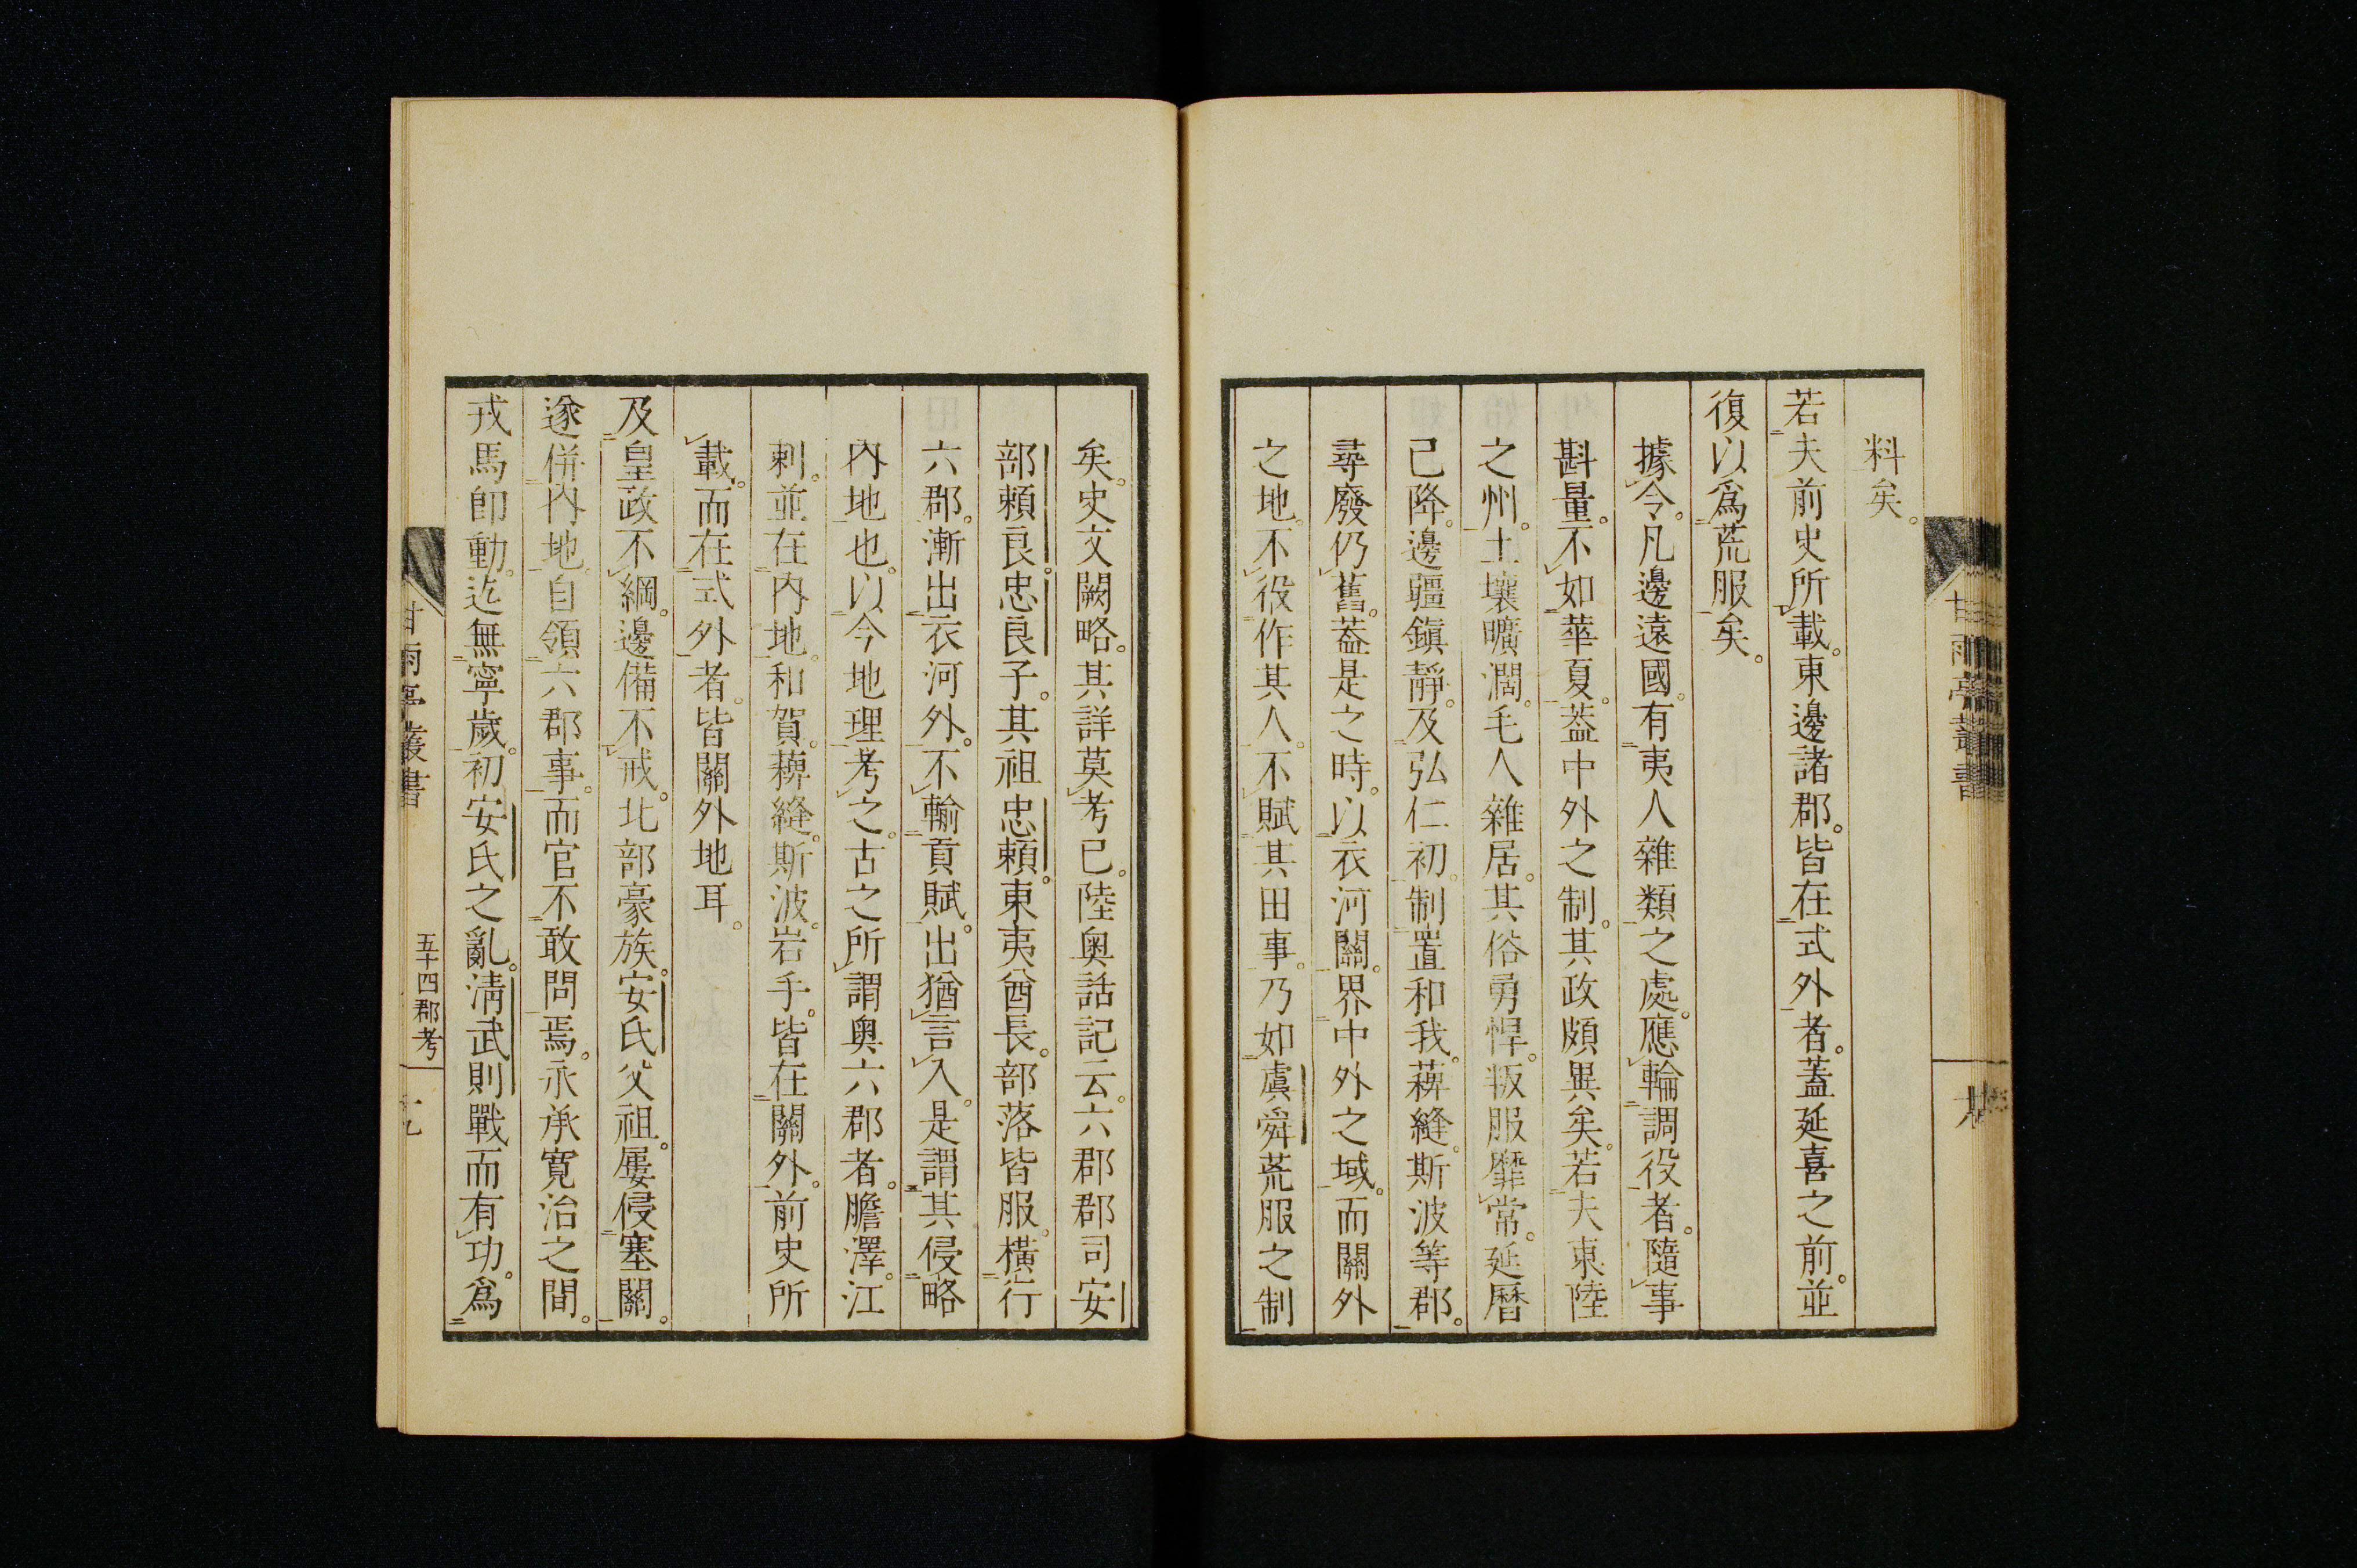 料矣。
若夫前史所載。東邊諸郡。皆在式外者。蓋延喜之前。並
復以爲荒服矣。
據令。凡邊遠國。有夷人雜類之處。應輪調役者。隨事
斟量。不如華夏。蓋中外之制。其政頗異矣。若夫東陸
之州。土壤曠濶。毛人雜居。其俗勇悍。叛服靡常。延曆
已降。邊疆鎭靜。及弘仁初。制置和我。薭縫。斯波等郡。
尋廢仍舊。蓋是之時。以衣河關。界中外之域。而關外
之地。不役作其人。不賦其田事。乃如虞舜荒服之制
矣。史文闕略。其詳莫考已。陸奥話記云。六郡郡司安
部頼良。忠良子。其祖忠頼。東夷酋長。部落皆服。横行
六郡。漸出衣河外。不輸貢賦。出猶言入。是謂其侵略
内地也。以今地理考之。古之所謂奥六郡者。膽澤。江
刺。並在内地。和賀。薭縫。斯波。岩手。皆在關外。前史所
載。而在式外者。皆關外地耳。
及皇政不綱。邊備不戒。北部豪族。安氏父祖。屢侵塞關。
遂併内地。自領六郡事。而官不敢問焉。永承寛治之間。
戎馬卽動。迄無寧歲。初安氏之亂。淸武則戰而有功。爲
甘雨亭叢書
五十四郡考
甘雨亭叢書